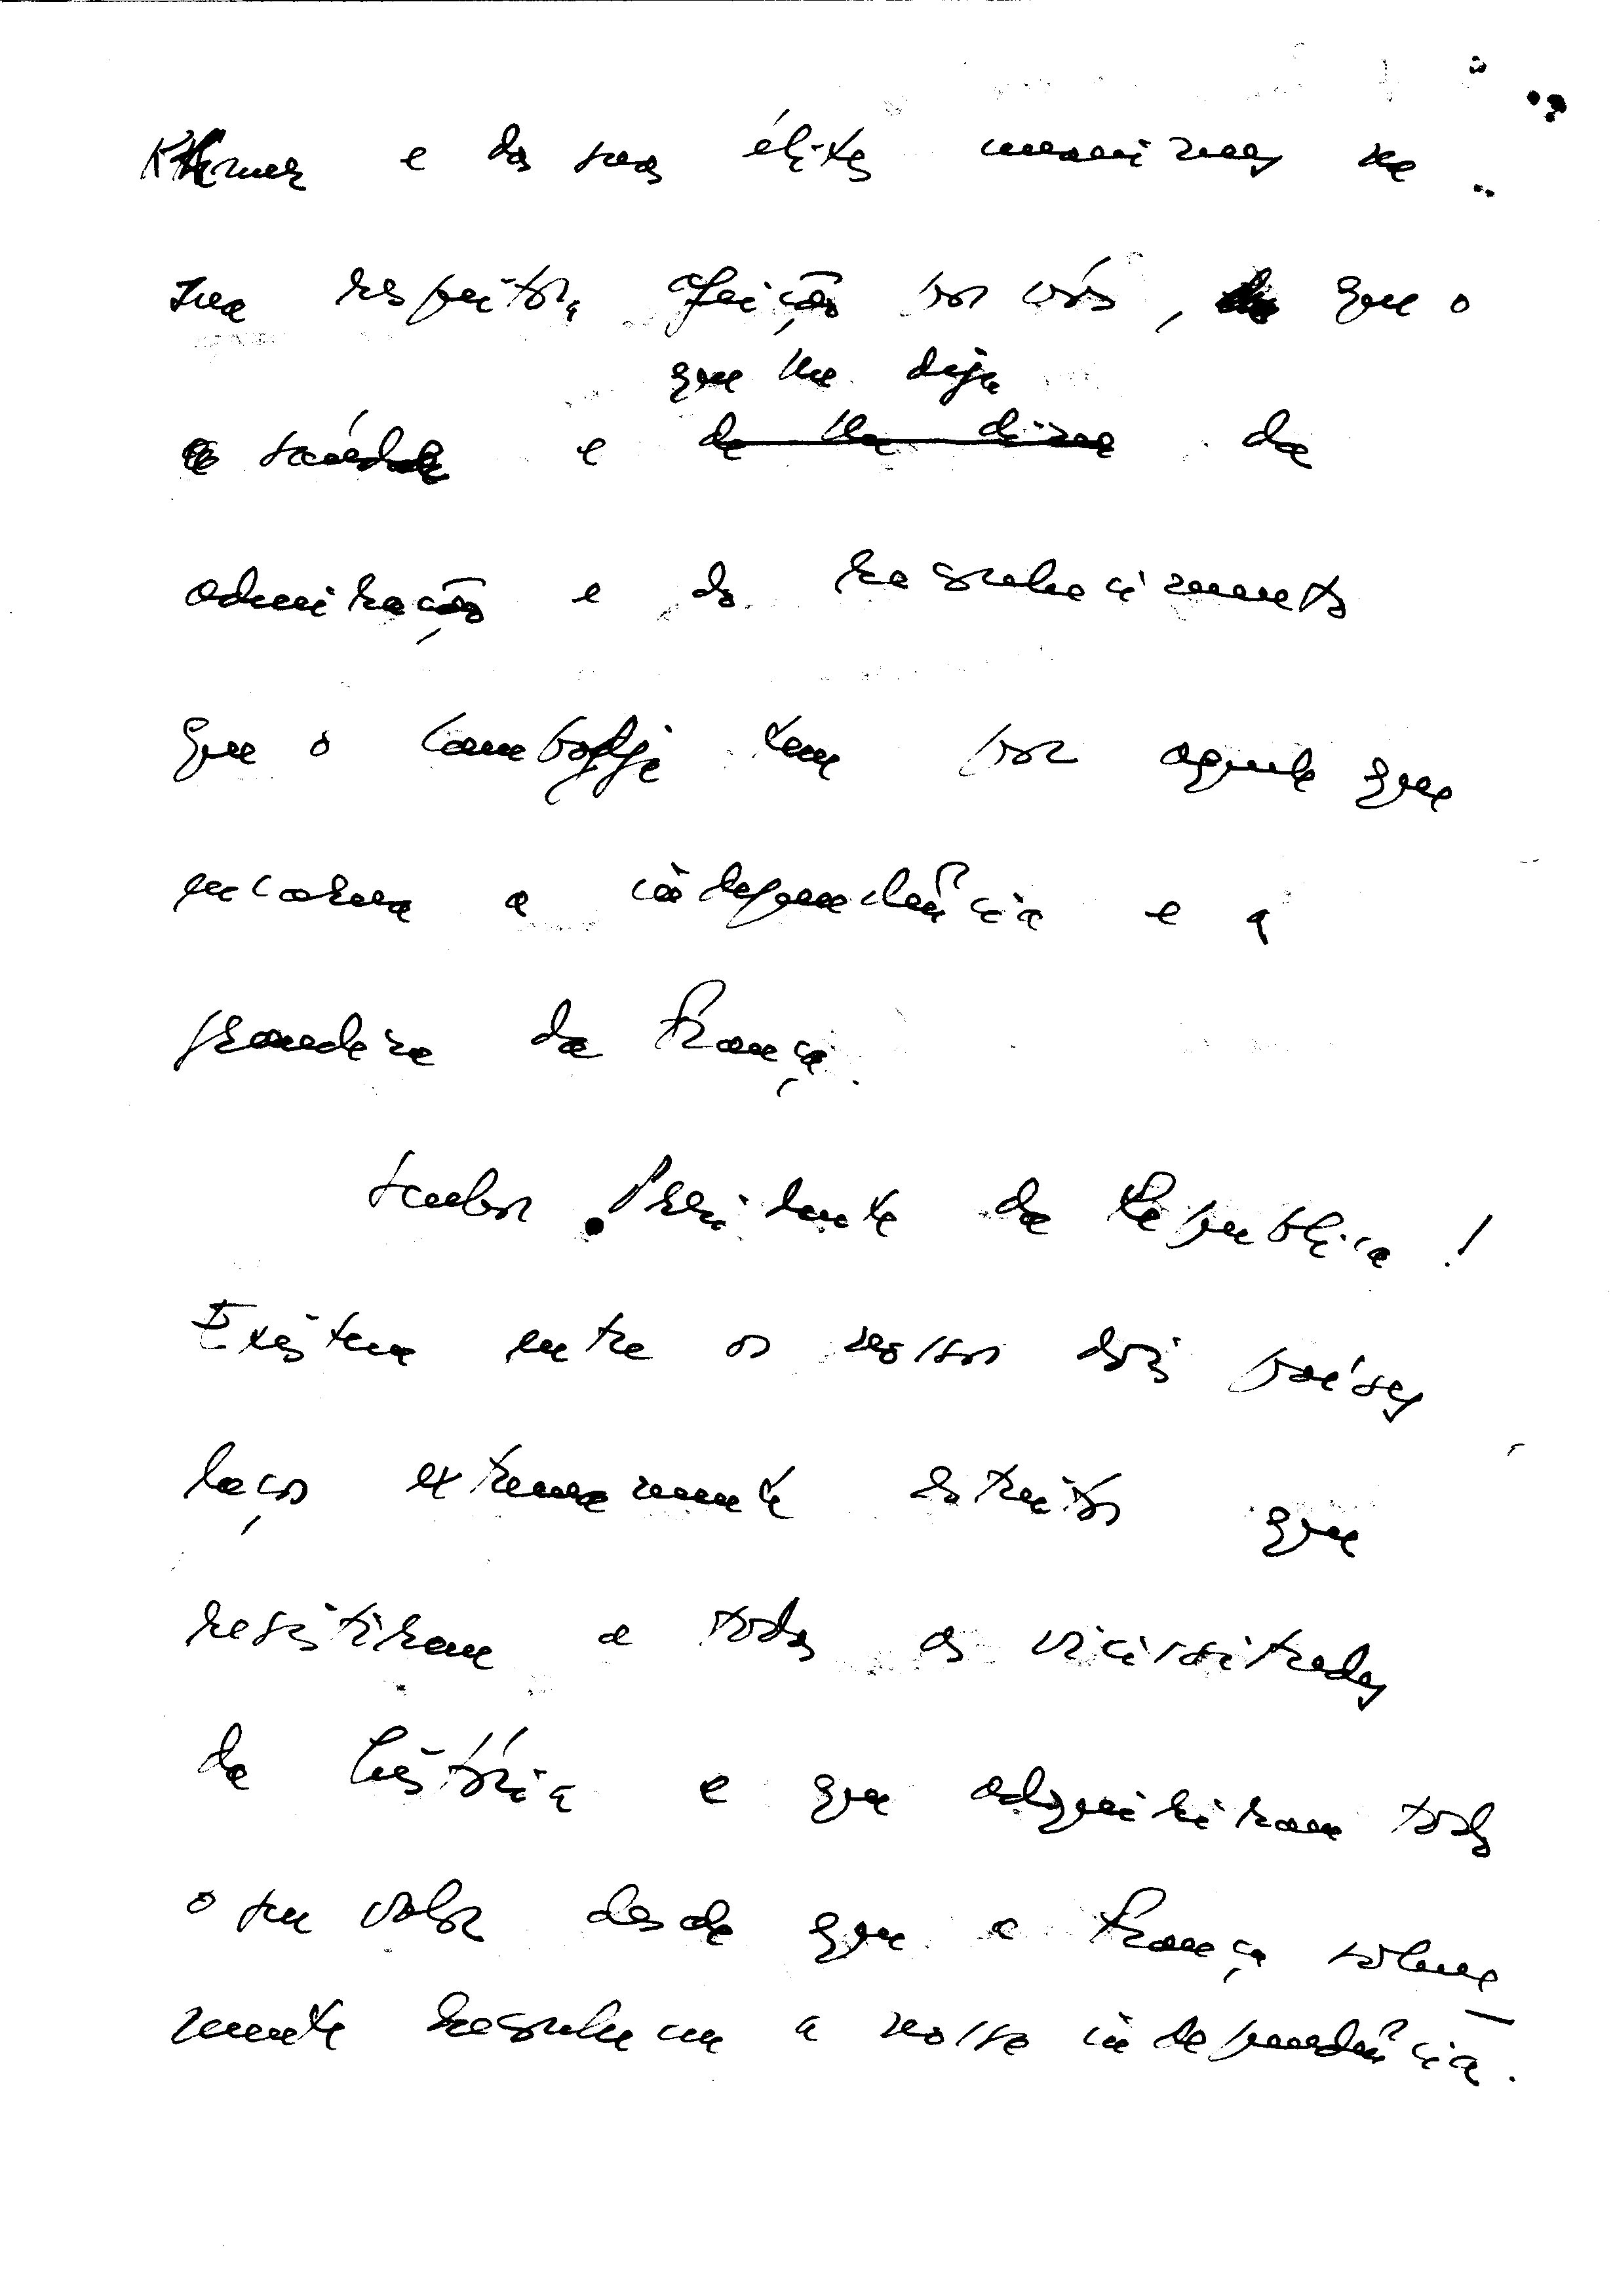 Khmer e das suas élites unanimes na
sua respeitosa afeição por vós, que o
que lhe diga
saúde e de lhe dizer da
admiração e do reconhecimento
que o Cambodje tem por aquele que
encarna a independência e a
grandeza da França.
Senhor Presidente da Republica!
Existem entre os nossos dois países
laços extremamente estreitos que
resistiram a todas as vicissitudes
da história e que adquiriram todo
o seu valor desde que a França solene
mente reconheceu a nossa independência.